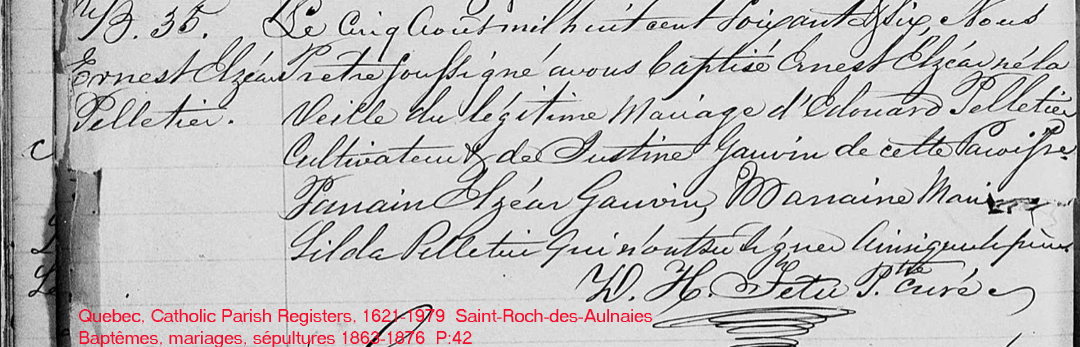 B. 35. Le cinq Aout mil huit cent soixant & six Nous
Ernest Elzéar Pretre soussigné avons baptisé Ernest Elzéar né la
Pelletier. Veille du légitime Mariage d'Edouard Pelletier
Cultivateur & de Justine Gauvin de cette Paroisse
Parrain Elzéar Gauvin, Marraine Marie
Gilda Pelletier qui n'ont su signer ainsi que le père
D. H. Tetu Ptre curé
Quebec, Catholic Parish Registers, 1621-1979 Saint-Roch-des-Aulnaies
Baptêmes, mariages, sépultures 1863-1876 P:42